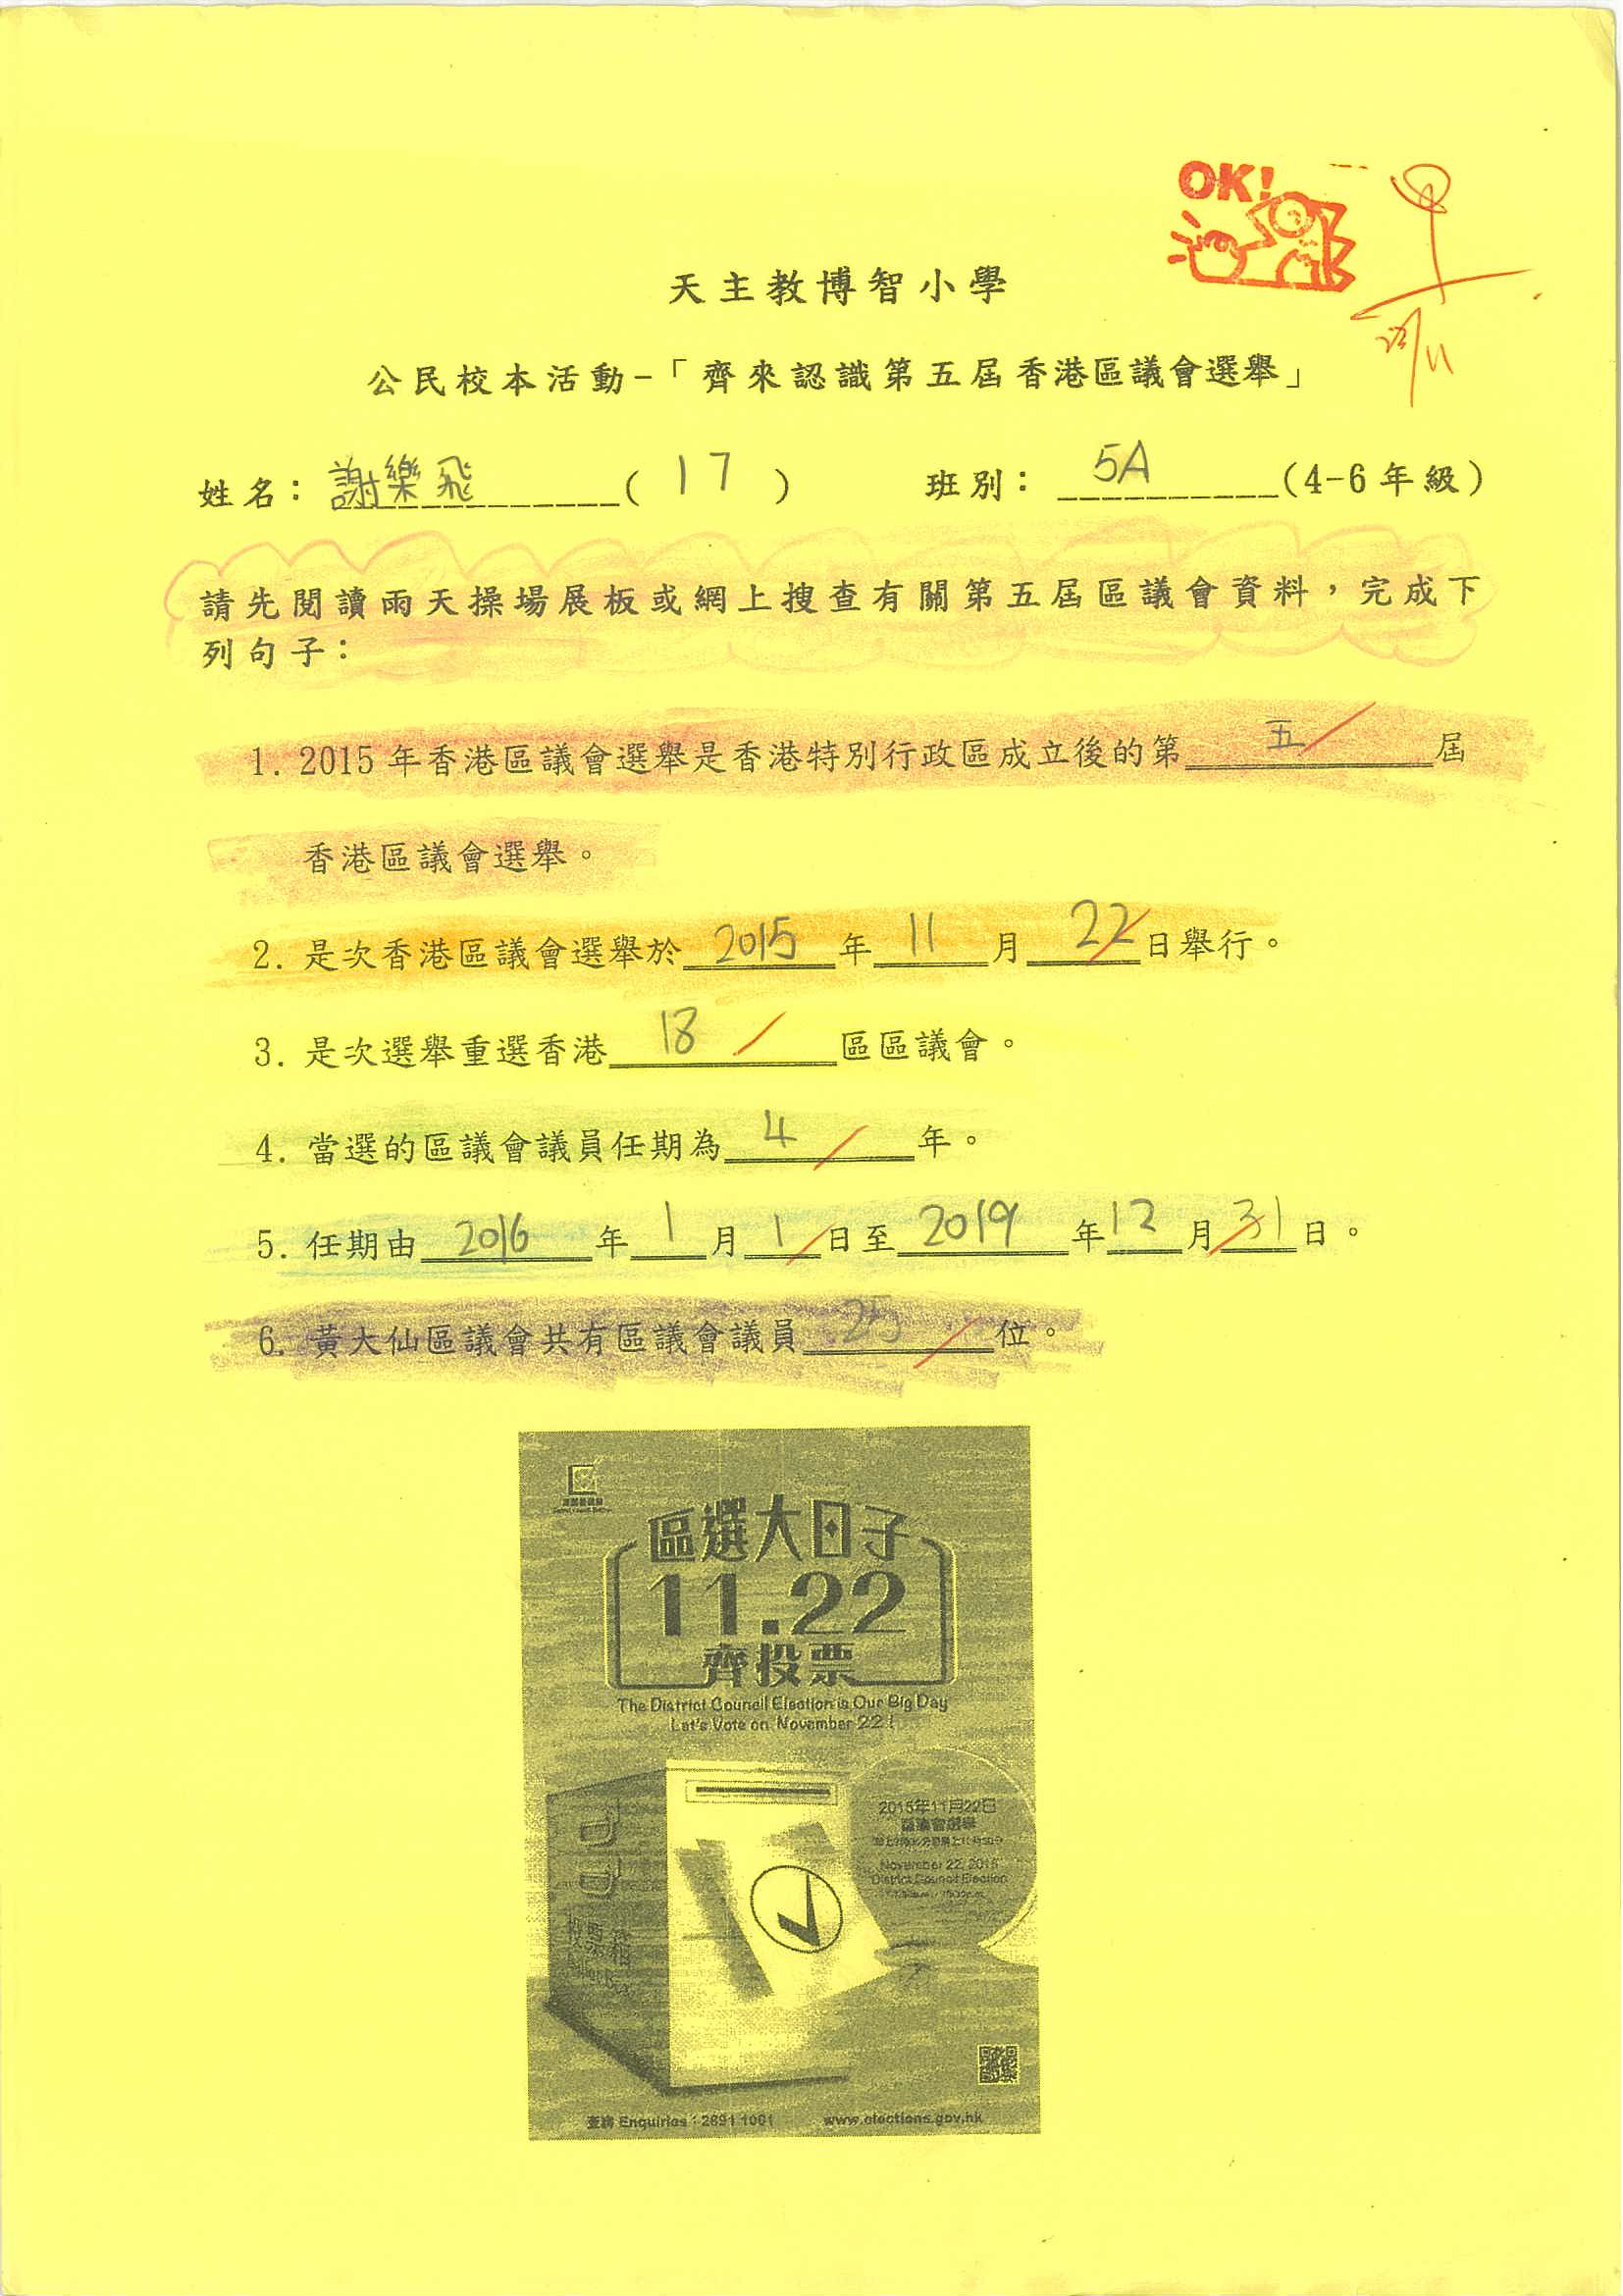 OK!
天主教博智小學
公民校本活動-「齊來認識第五屆香港區議會選舉」
姓名：謝樂飛(17) 班別：5A(4-6年級)
請先閱讀雨天操場展板或網上搜查有關第五屆區議會資料，完成下
列句子：
1. 2015年香港區議會選舉是香港特別行政區成立後的第五屆
香港區議會選舉。
2. 是次香港區議會選舉於2015年11月22日舉行。
3. 是次選舉重選香港18區區議會。
4. 當選的區議會議員任期為4年。
5. 任期由2016年1月1日至2019年12月31日。
6. 黃大仙區議會共有區議會議員25位。
區選大日子
11.22
齊投票
The District Council Election is Our Big Day
Let's Vote on November 22!
2015年11月22日
區議會選舉
November 22, 2015
District Council Election
投票箱
Ballot Box
查詢 Enquiries：2891 1001 www.elections.gov.hk